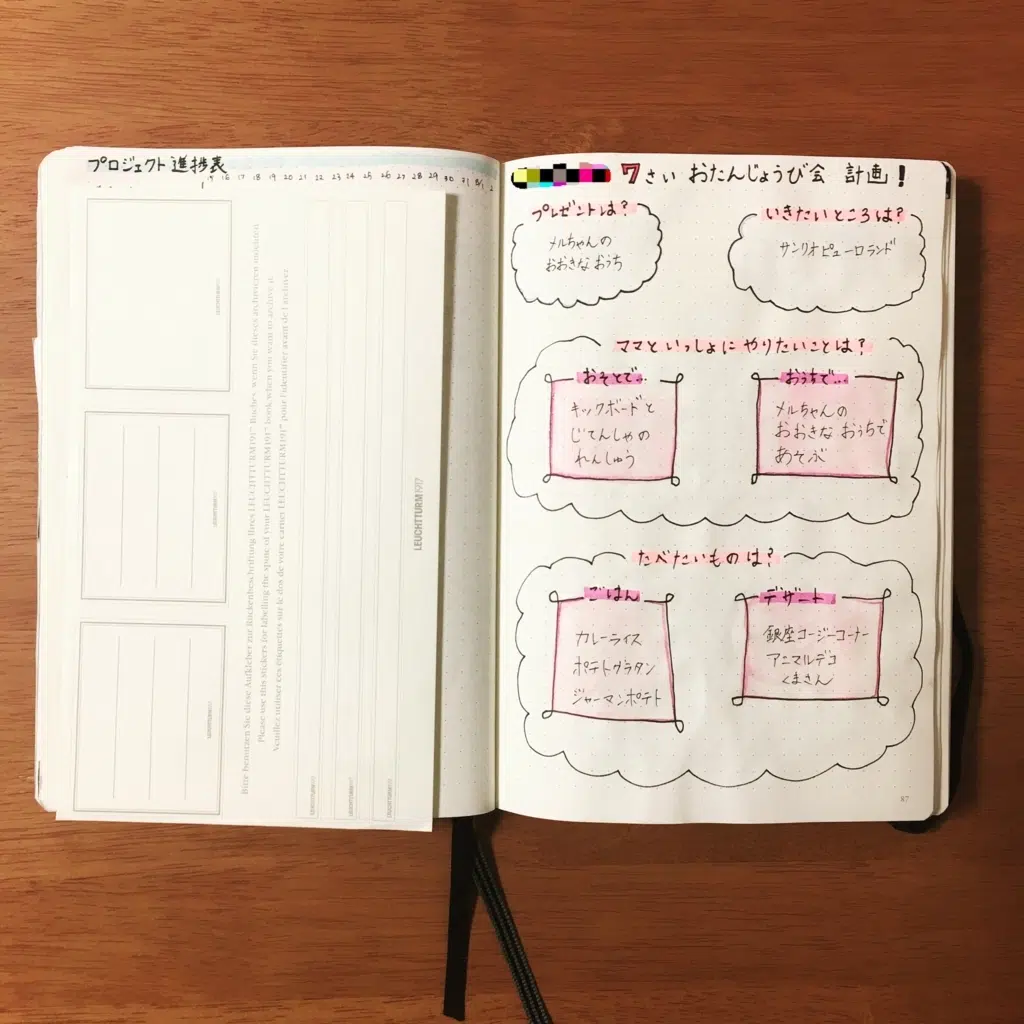 プロジェクト進捗表
15 16 17 18 19 20 21 22 23 24 25 26 27 28 29 30 31 8/1 2
LEUCHTTURM1917
LEUCHTTURM1917
LEUCHTTURM1917
Bitte benutzen Sie diese Aufkleber zur Rückenbeschriftung Ihres LEUCHTTURM1917 Buches, wenn Sie dieses archivieren möchten.
Please use this stickers for labelling the spine of your LEUCHTTURM1917 book when you want to archive it.
Veuillez utiliser ces étiquettes sur le dos de votre carnet LEUCHTTURM1917 pour l'identifier avant de l'archiver.
LEUCHTTURM1917
LEUCHTTURM1917
LEUCHTTURM1917
LEUCHTTURM1917
7さい おたんじょうび会 計画!
プレゼントは?
メルちゃんの
おおきな おうち
いきたいところは?
サンリオピューロランド
ママと いっしょに やりたいことは?
おそとで…
キックボードと
じてんしゃの
れんしゅう
おうちで…
メルちゃんの
おおきな おうちで
あそぶ
たべたいものは?
ごはん
カレーライス
ポテトグラタン
ジャーマンポテト
デザート
銀座コージーコーナー
アニマルデコ
くまさん
87